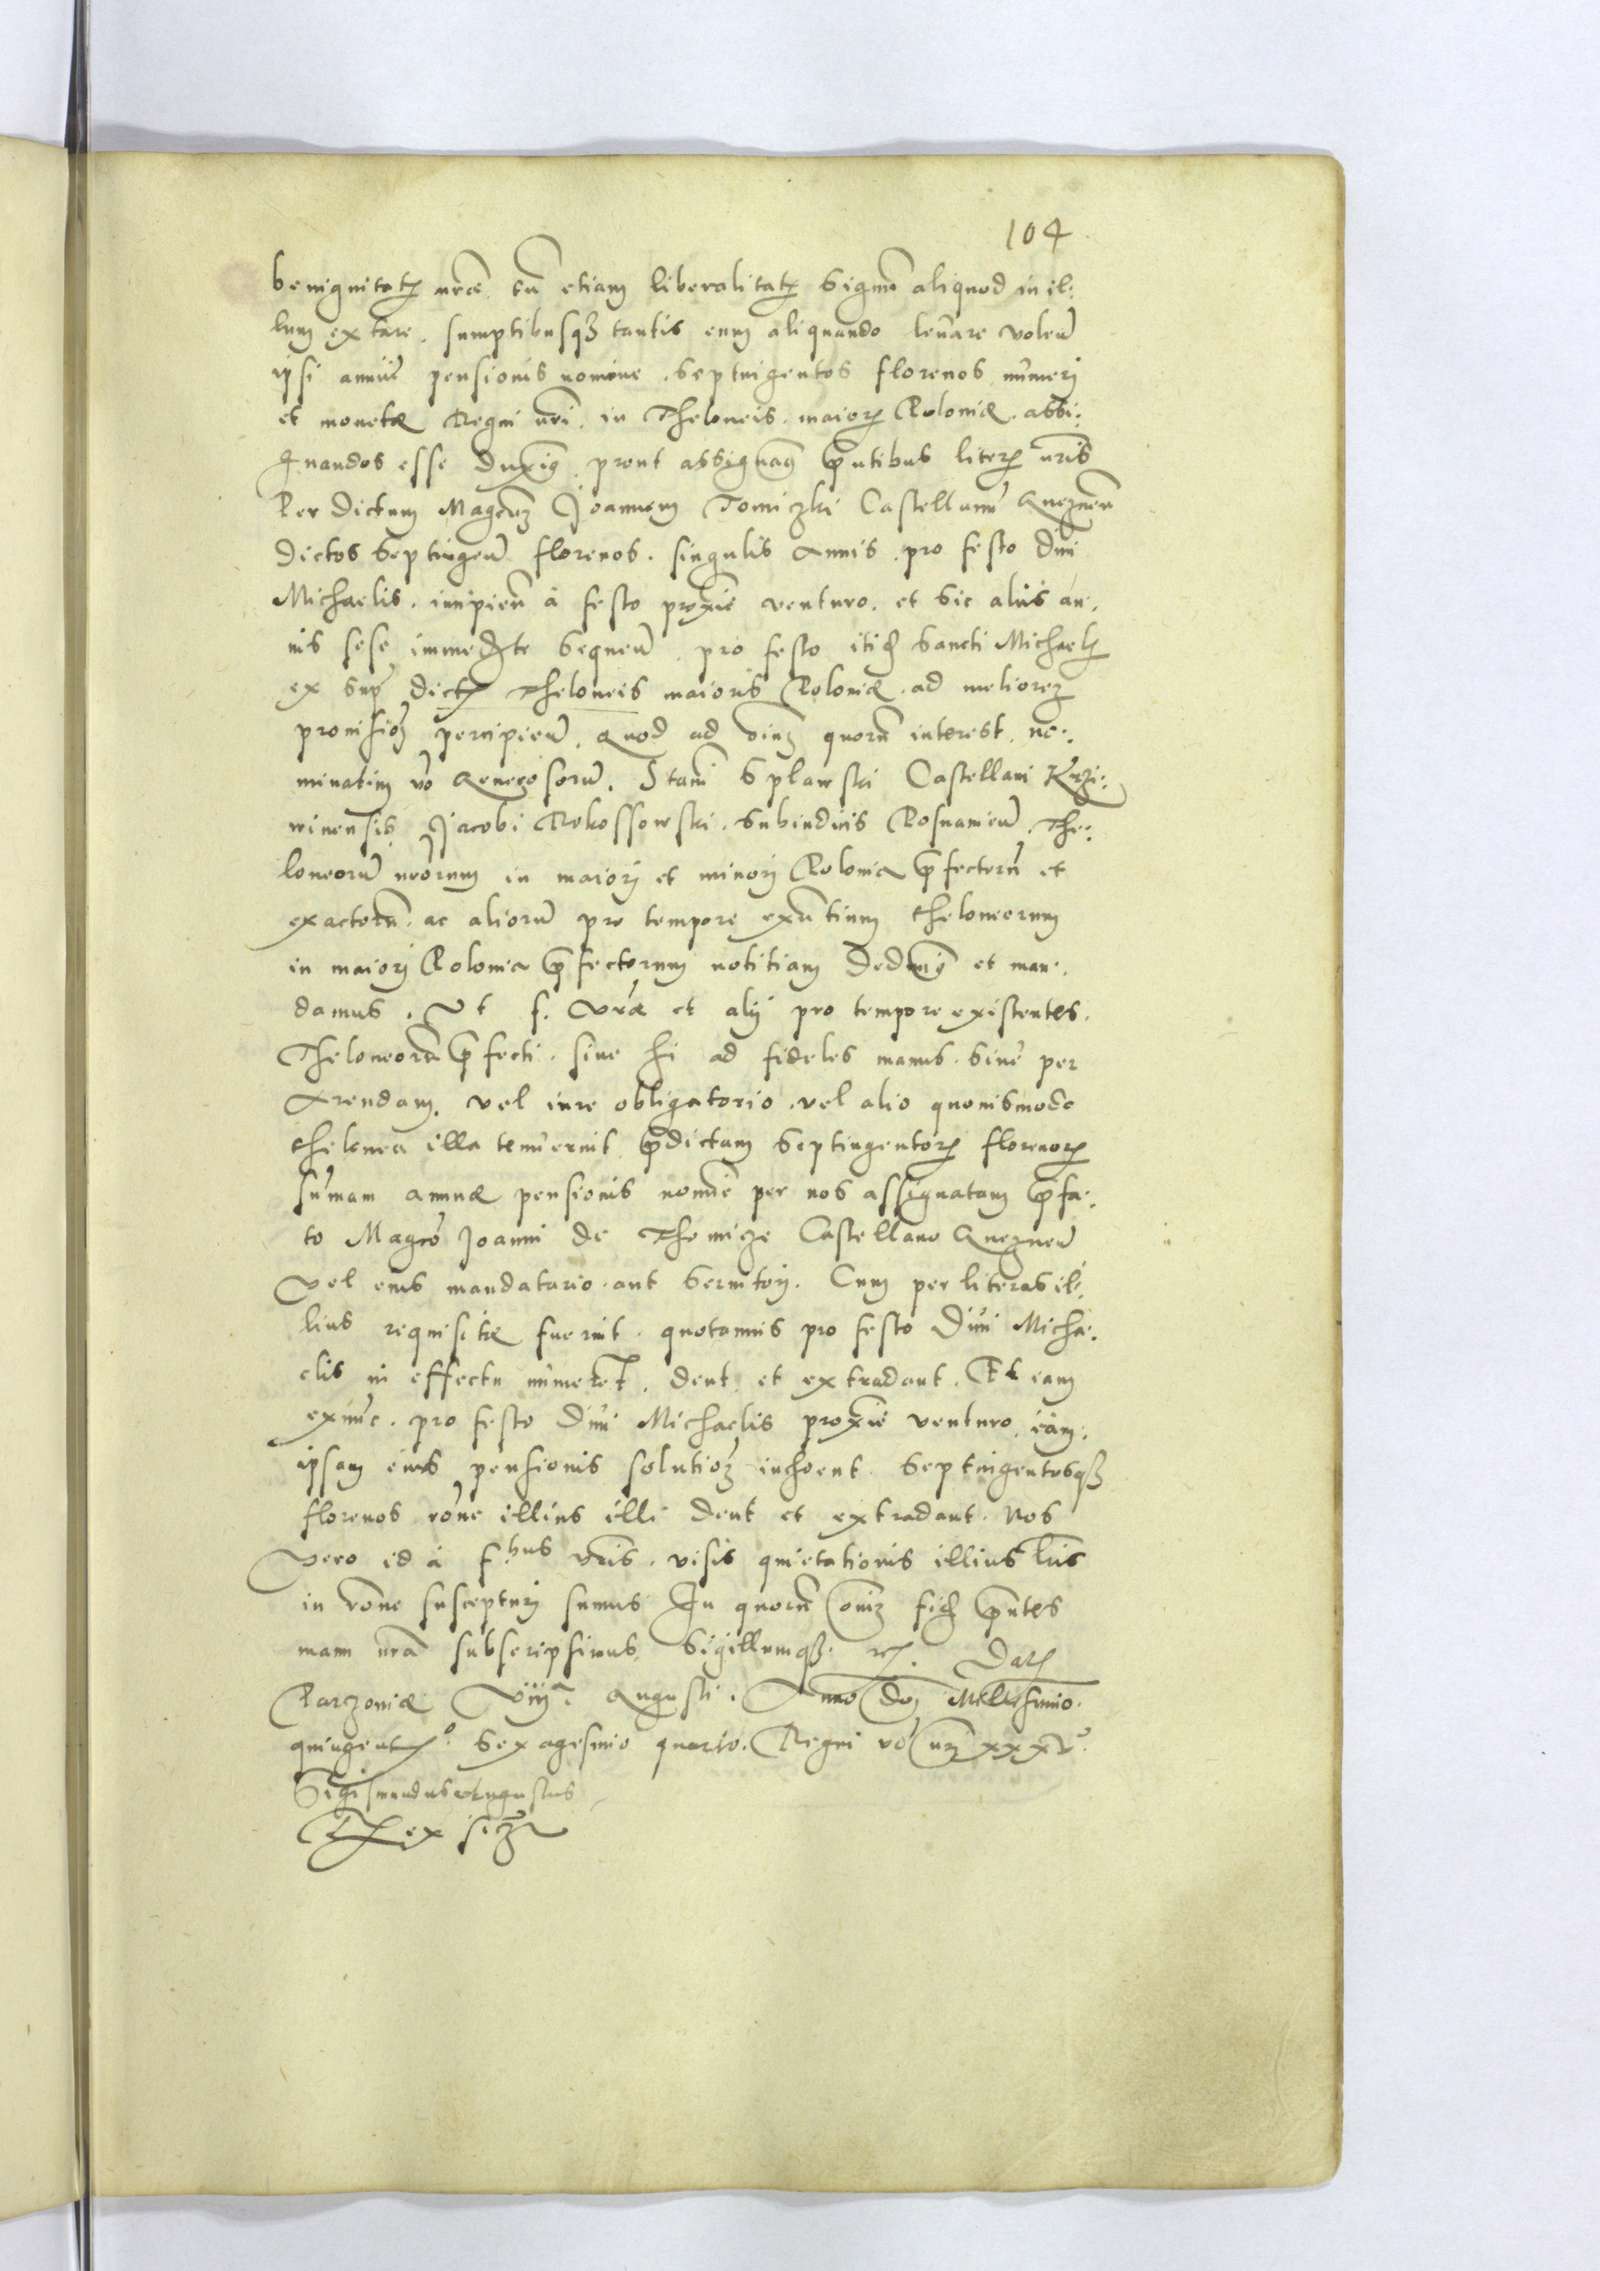 104
benignitatem nrae. tu etiam liberalitatis signu aliquod in il:
lum extare. sumptibusq3 tantis eum aliquando levare volen
ipsi annue pensionis nomine. septuigentos florenos numeri
et monetae Regni nri. in Theloneis. maioris Poloniae. assi:
gnandos esse duximus prout assignamus pntibus literis nris
Per dictum Magcum Joannem Tomiczki Castellanu Gneznen
dictos septingen florenos. singulis Annis. pro festo divi
Michaelis. incipien à festo proxie venturo. et sic aliis an:
nis sese immediate sequen. pro festo itidem sancti Michaelis
ex supra dictis Theloneis maioris Poloniae. ad meliorem
provisione percipien. Quod ad oium quoru interest. no:
minatim vo Generosoru. Stani Splawski Castellani Krzi:
winensis. Jacobi Rokossowski. Subiudicis Posnanien. The:
loneoru nrorum in maiori et minori Polonia pfectoru et
exactoru. ac alioru pro tempore exntium theloneorum
in maiori Polonia pfectorum notitiam deducimus et man:
damus. Ut f. vrae et alij pro tempore existentes.
Theloneoru pfecti. sive hi ad fideles manus. sive per
Arendam. vel iure obligatorio. vel alio quovismodo
thelonea illa tenuerint pdictam septingentorum florenorum
sumam annuae pensionis nomie per nos assignatam pfa:
to Magco Joanni de Thomicze Castellano Gneznen
Vel eius mandatario. aut servitori. Cum per literas il:
lius requisitae fuerint. quotannis pro festo Divi Micha:
elis in effectu numerent. dent et extradant. Et iam
exnuc. pro festo Divi Michaelis proxie venturo. eam:
ipsam eius pensionis solutionem inchoent. septingentosq3
florenos rone illius illi dent et extradant. Nos
Vero id à f.bus vris. visis quietationis illius lris
in rone suscepturi sumus In quoru oium fidem pntes
manu nra subscripsimus. Sigillumq3. etc. Datum
Parczoviae VIIIa. Augusti. Anno doi Millesimo.
quingentmo. sexagesimo quarto. Regni vo nri xxxvo.
Sigismundus Augustus
Rex sszt